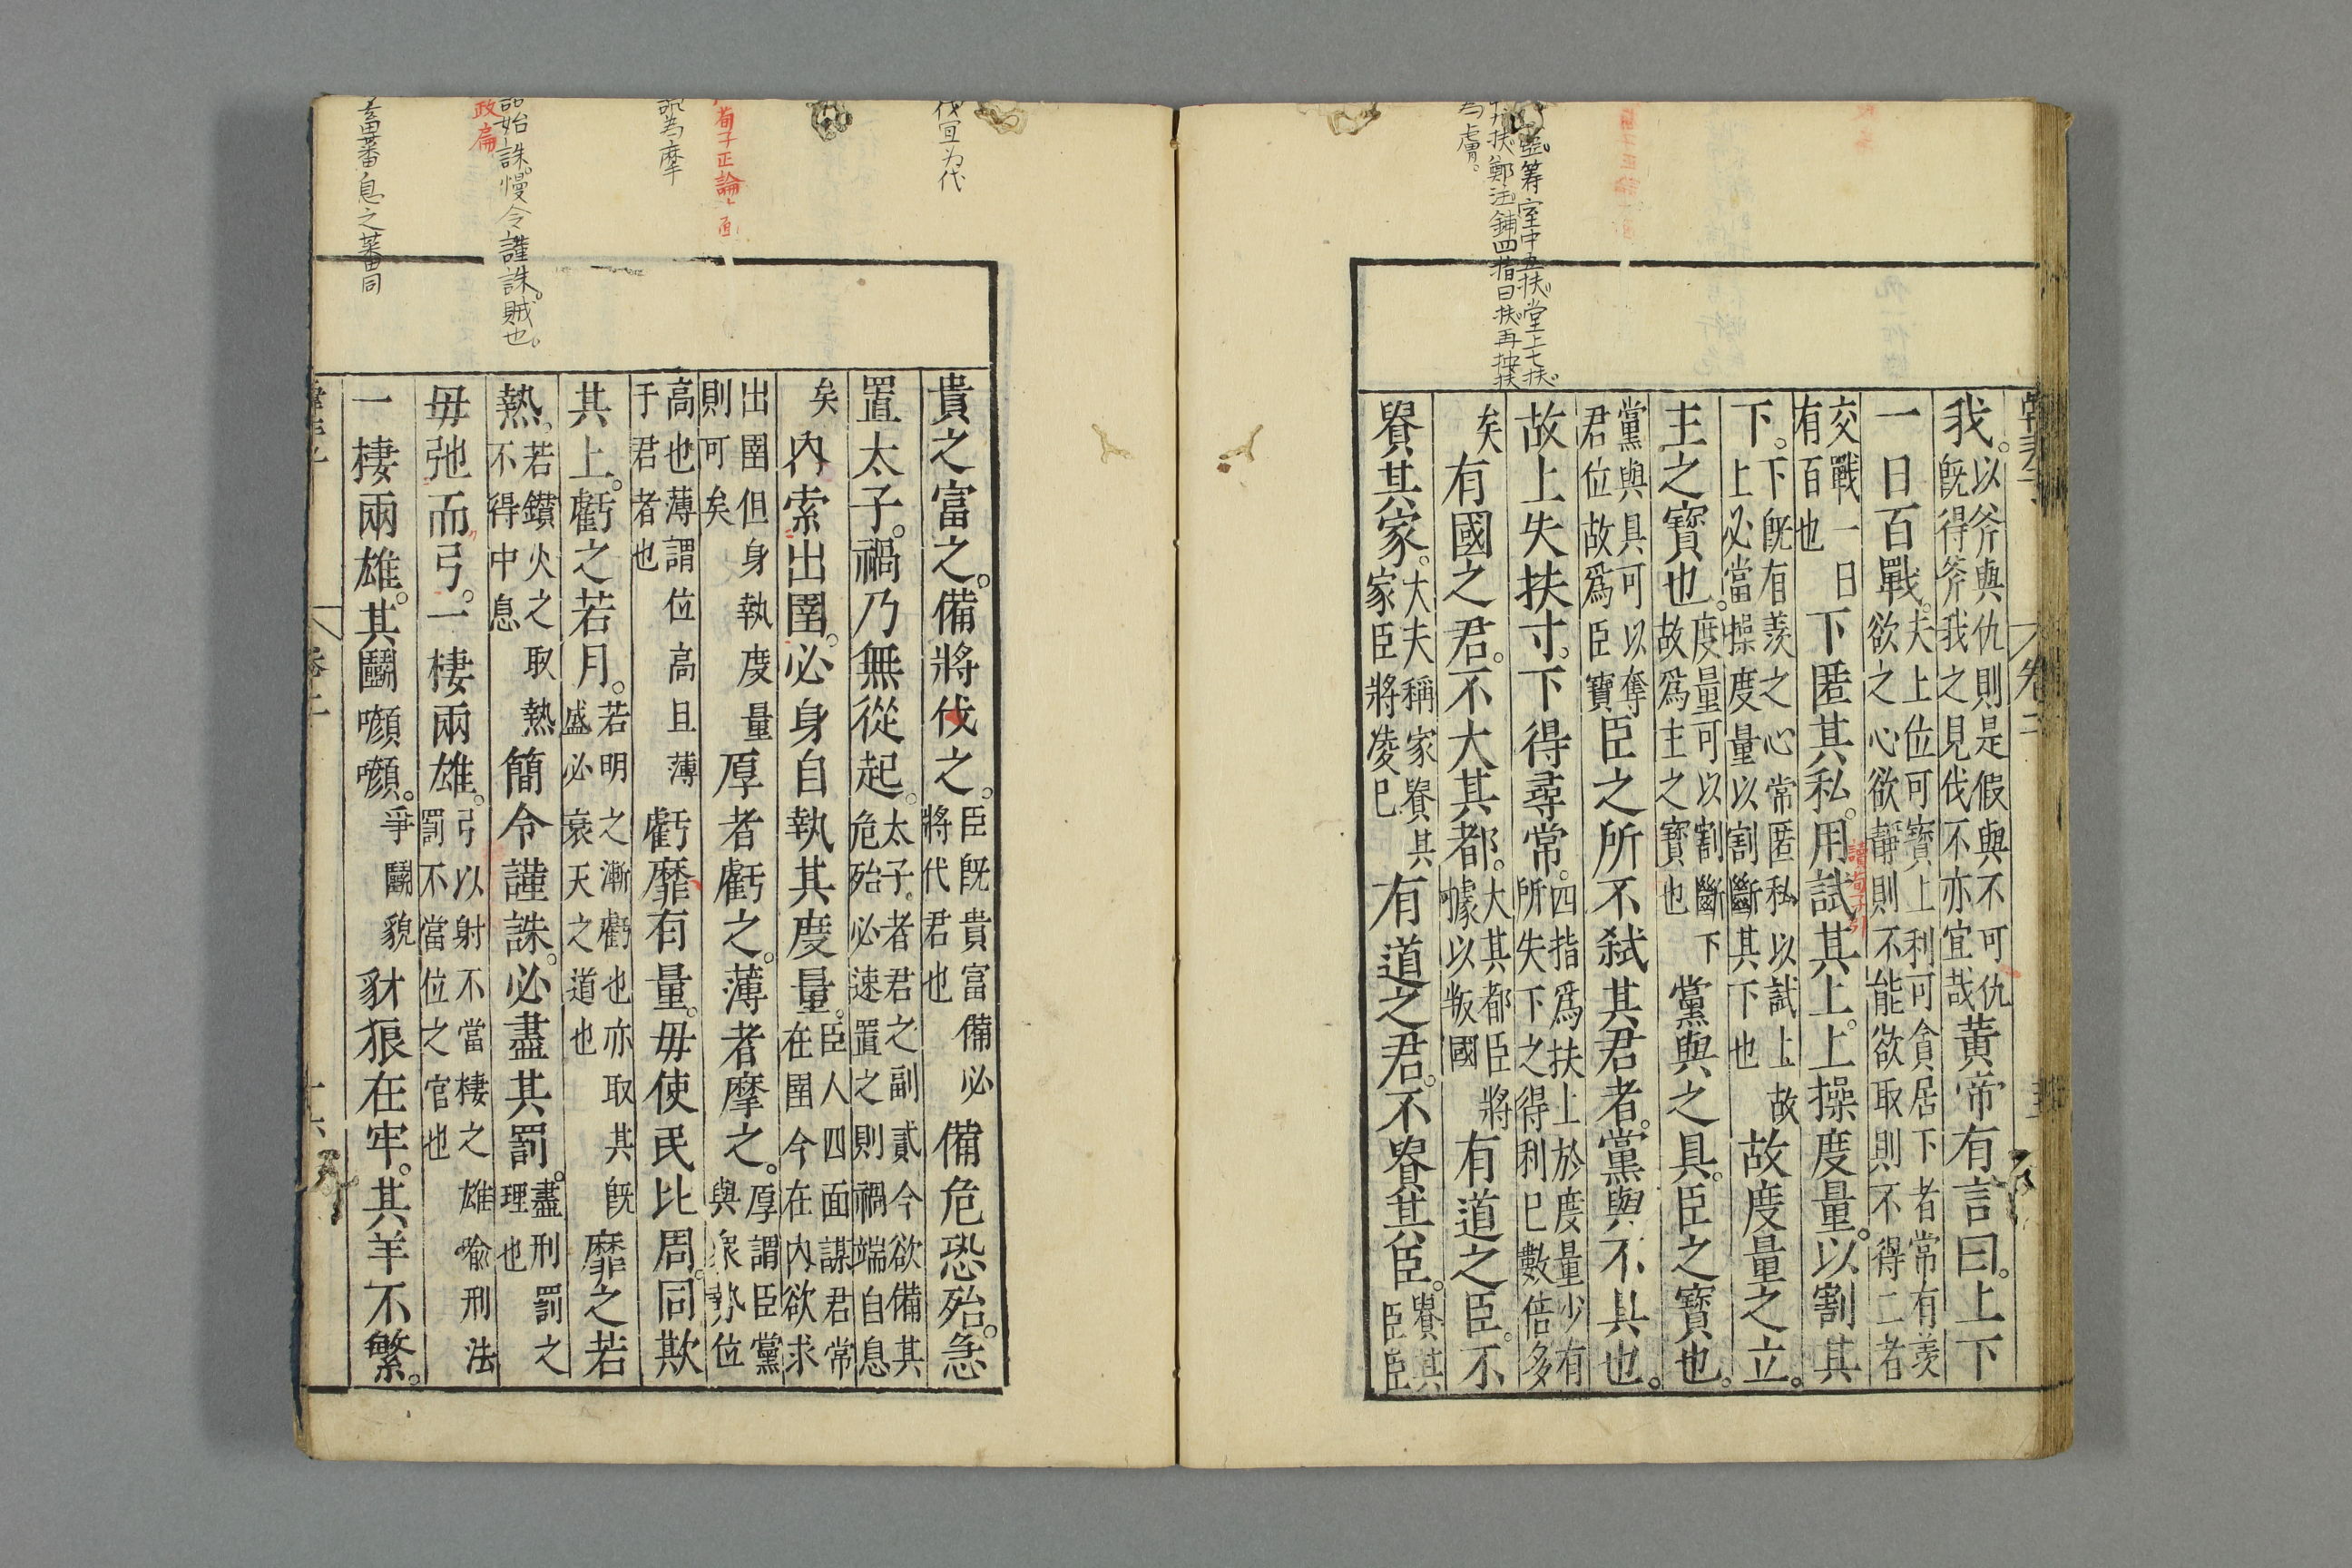 我。以斧與仇則是假與不可仇
既得斧我之見伐不亦宜哉黃帝有言曰。上下
一日百戰。夫上位可寶上利可貪居下者常有羨
欲之心欲靜則不能欲取則不得二者
交戰一日
有百也下匿其私。用試其上。上操度量。以割其
下。下既有羨之心常匿私以試上故
上必當操度量以割斷其下也故度量之立。
主之寶也。度量可以割斷下
故爲主之寶也黨與之具。臣之寶也。
黨與具可以奪
君位故爲臣寶臣之所不弑其君者。黨與不具也。
故上失扶寸。下得尋常。四指爲扶上於度量少有
所失下之得利已數倍多
矣有國之君。不大其都。大其都臣將
據以叛國有道之臣。不
貴其家。大夫稱家貴其
家臣將凌已有道之君。不貴其臣。貴其
臣臣
貴之富之。備將伐之。臣既貴富備必
將代君也備危恐殆。急
置太子。禍乃無從起。太子。者君之副貳今欲備其
危殆必速置之則禍端自息
矣內索出圉。必身自執其度量。臣人四面謀君常
在圉今在內欲求
出圉但身執度量
則可矣厚者虧之。薄者摩之。厚謂臣黨
與衆勢位
高也薄謂位高且薄
于君者也虧靡有量。毋使民比周。同欺
其上。虧之若月。若明之漸虧也亦取其既
盛必衰天之道也靡之若
熱。若鑽火之取熱
不得中息簡令謹誅。必盡其罰。盡刑罰之
理也
毋弛而弓。一棲兩雄。弓以射不當棲之雄喻刑法
罰不當位之官也
一棲兩雄。其鬬㘖㘖。爭鬬貌豺狼在牢。其羊不繁。
卷二
室中五扶堂上七扶
鄭注鋪四指曰扶
為膚。
讀荀子引
伐宜为代
荀子正論
為摩
始誅。慢令謹誅。賊也。
政扁
蕃息之蕃同